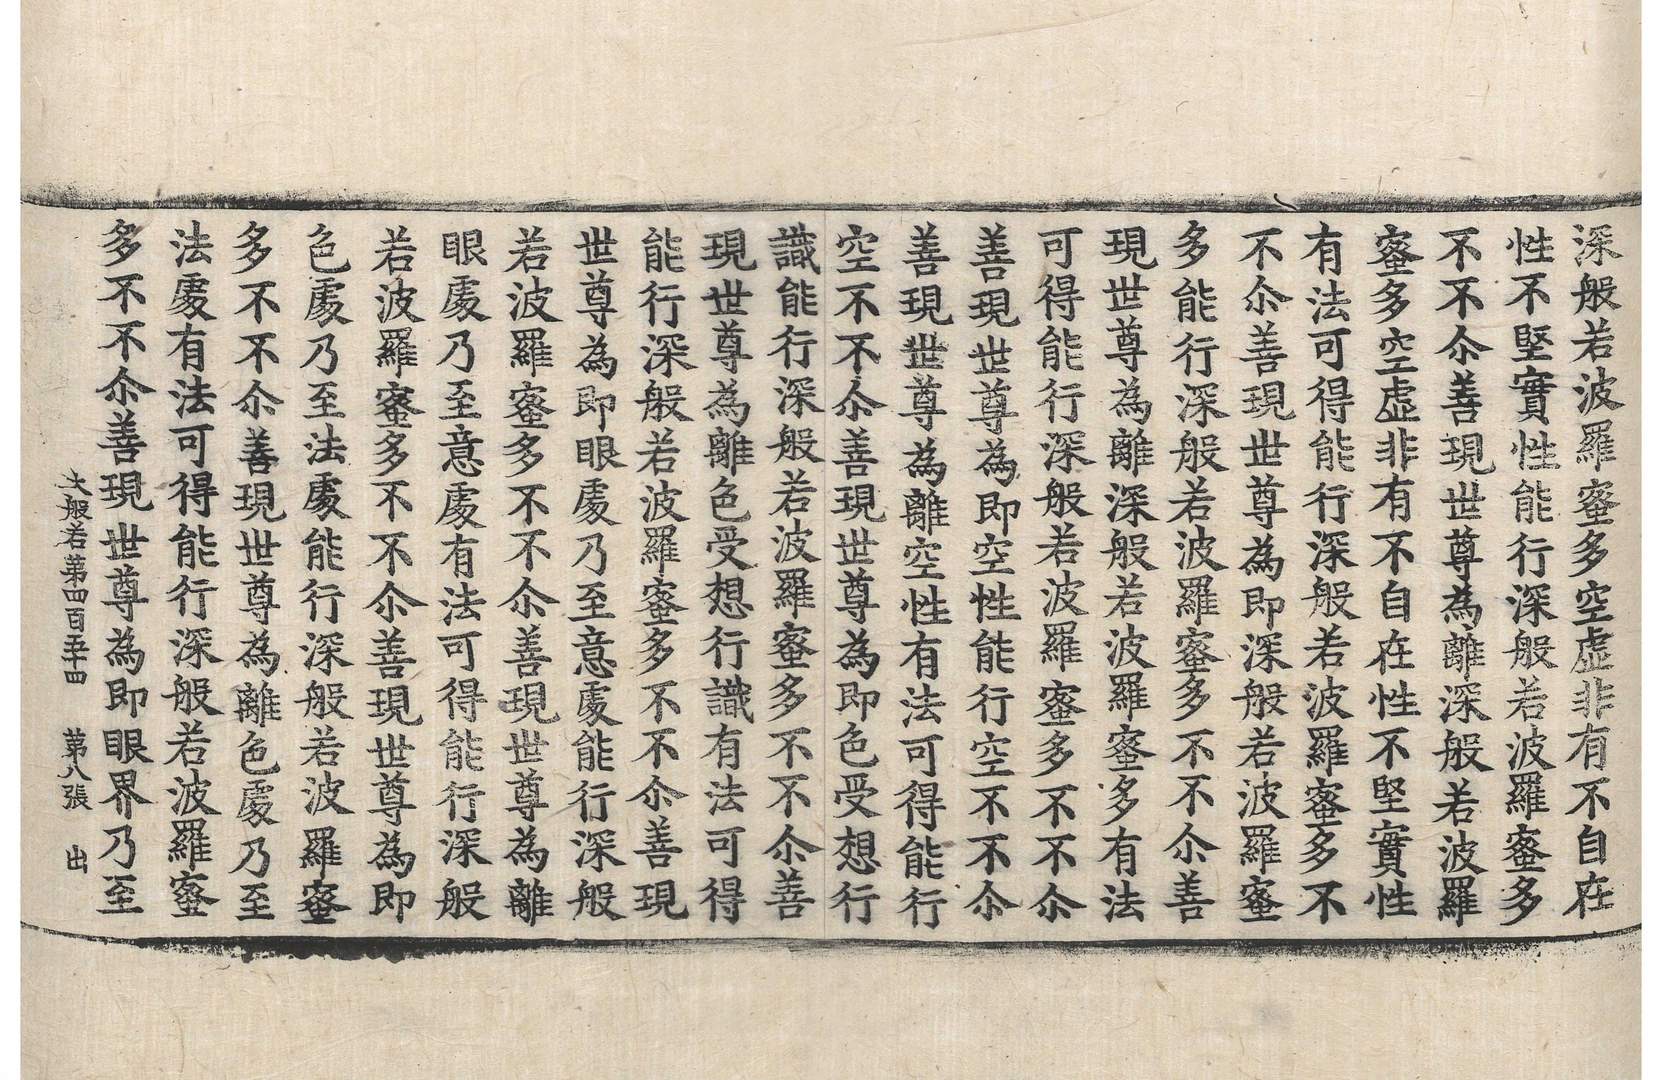 深般若波羅蜜多空虛非有不自在
性不堅實性能行深般若波羅蜜多
不不尒善現世尊為離深般若波羅
蜜多空虛非有不自在性不堅實性
有法可得能行深般若波羅蜜多不
不尒善現世尊為即深般若波羅蜜
多能行深般若波羅蜜多不不尒善
現世尊為離深般若波羅蜜多有法
可得能行深般若波羅蜜多不不尒
善現世尊為即空性能行空不不尒
善現世尊為離空性有法可得能行
空不不尒善現世尊為即色受想行
識能行深般若波羅蜜多不不尒善
現世尊為離色受想行識有法可得
能行深般若波羅蜜多不不尒善現
世尊為即眼處乃至意處能行深般
若波羅蜜多不不尒善現世尊為離
眼處乃至意處有法可得能行深般
若波羅蜜多不不尒善現世尊為即
色處乃至法處能行深般若波羅蜜
多不不尒善現世尊為離色處乃至
法處有法可得能行深般若波羅蜜
多不不尒善現世尊為即眼界乃至
大般若第四百五十四 第八張 出